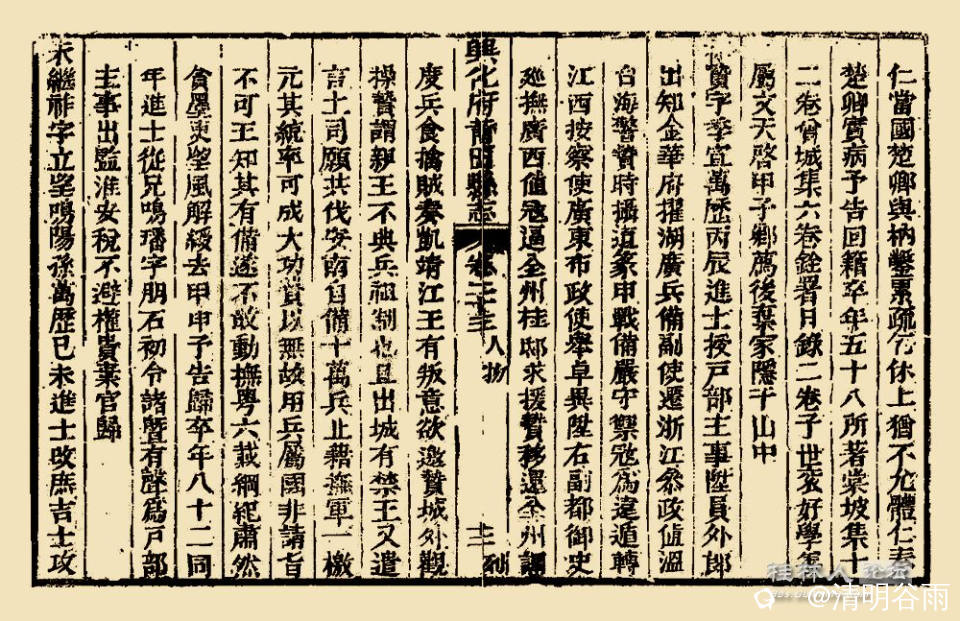 仁當國楚卿與枘鑿累疏乞休上猶不允體仁奏
楚卿實病予告回籍卒年五十八所著棠坡集十
二卷曾城集六卷銓署日錄二卷子世袞好學能
屬文天啓甲子鄉薦後棄家隱于山中
贄字季宣萬歷丙辰進士授戸部主事陞員外郎
出知金華府擢湖廣兵備副使遷浙江叅政值溫
台海警贄時攝道篆申戰備嚴守禦冦為遠遁轉
江西按察使廣東布政使舉卓異陞右副都御史
廵撫廣西值冦逼全州桂邸求援贄移還全州調
興化府莆田縣志 卷二十三 人物 十三 列
度兵食擒賊奏凱靖江王有叛意欲邀贄城外觀
操贄謂親王不典兵祖制也且出城有禁王又遣
言土司願共伐安南自備十萬兵止藉撫軍一檄
元其統率可成大功贄以無故用兵屬國非請旨
不可王知其有備遂不敢動撫粤六載綱紀肅然
貪墨吏望風解綬去甲申子告歸卒年八十二同
年進士從兄鳴璠字朋石初令諸暨有聲為戸部
主事出監淮安稅不避權貴棄官歸
朱繼祚字立望鳴陽孫萬歷已未進士改庶吉士攻
桂林人论坛
@清明谷雨